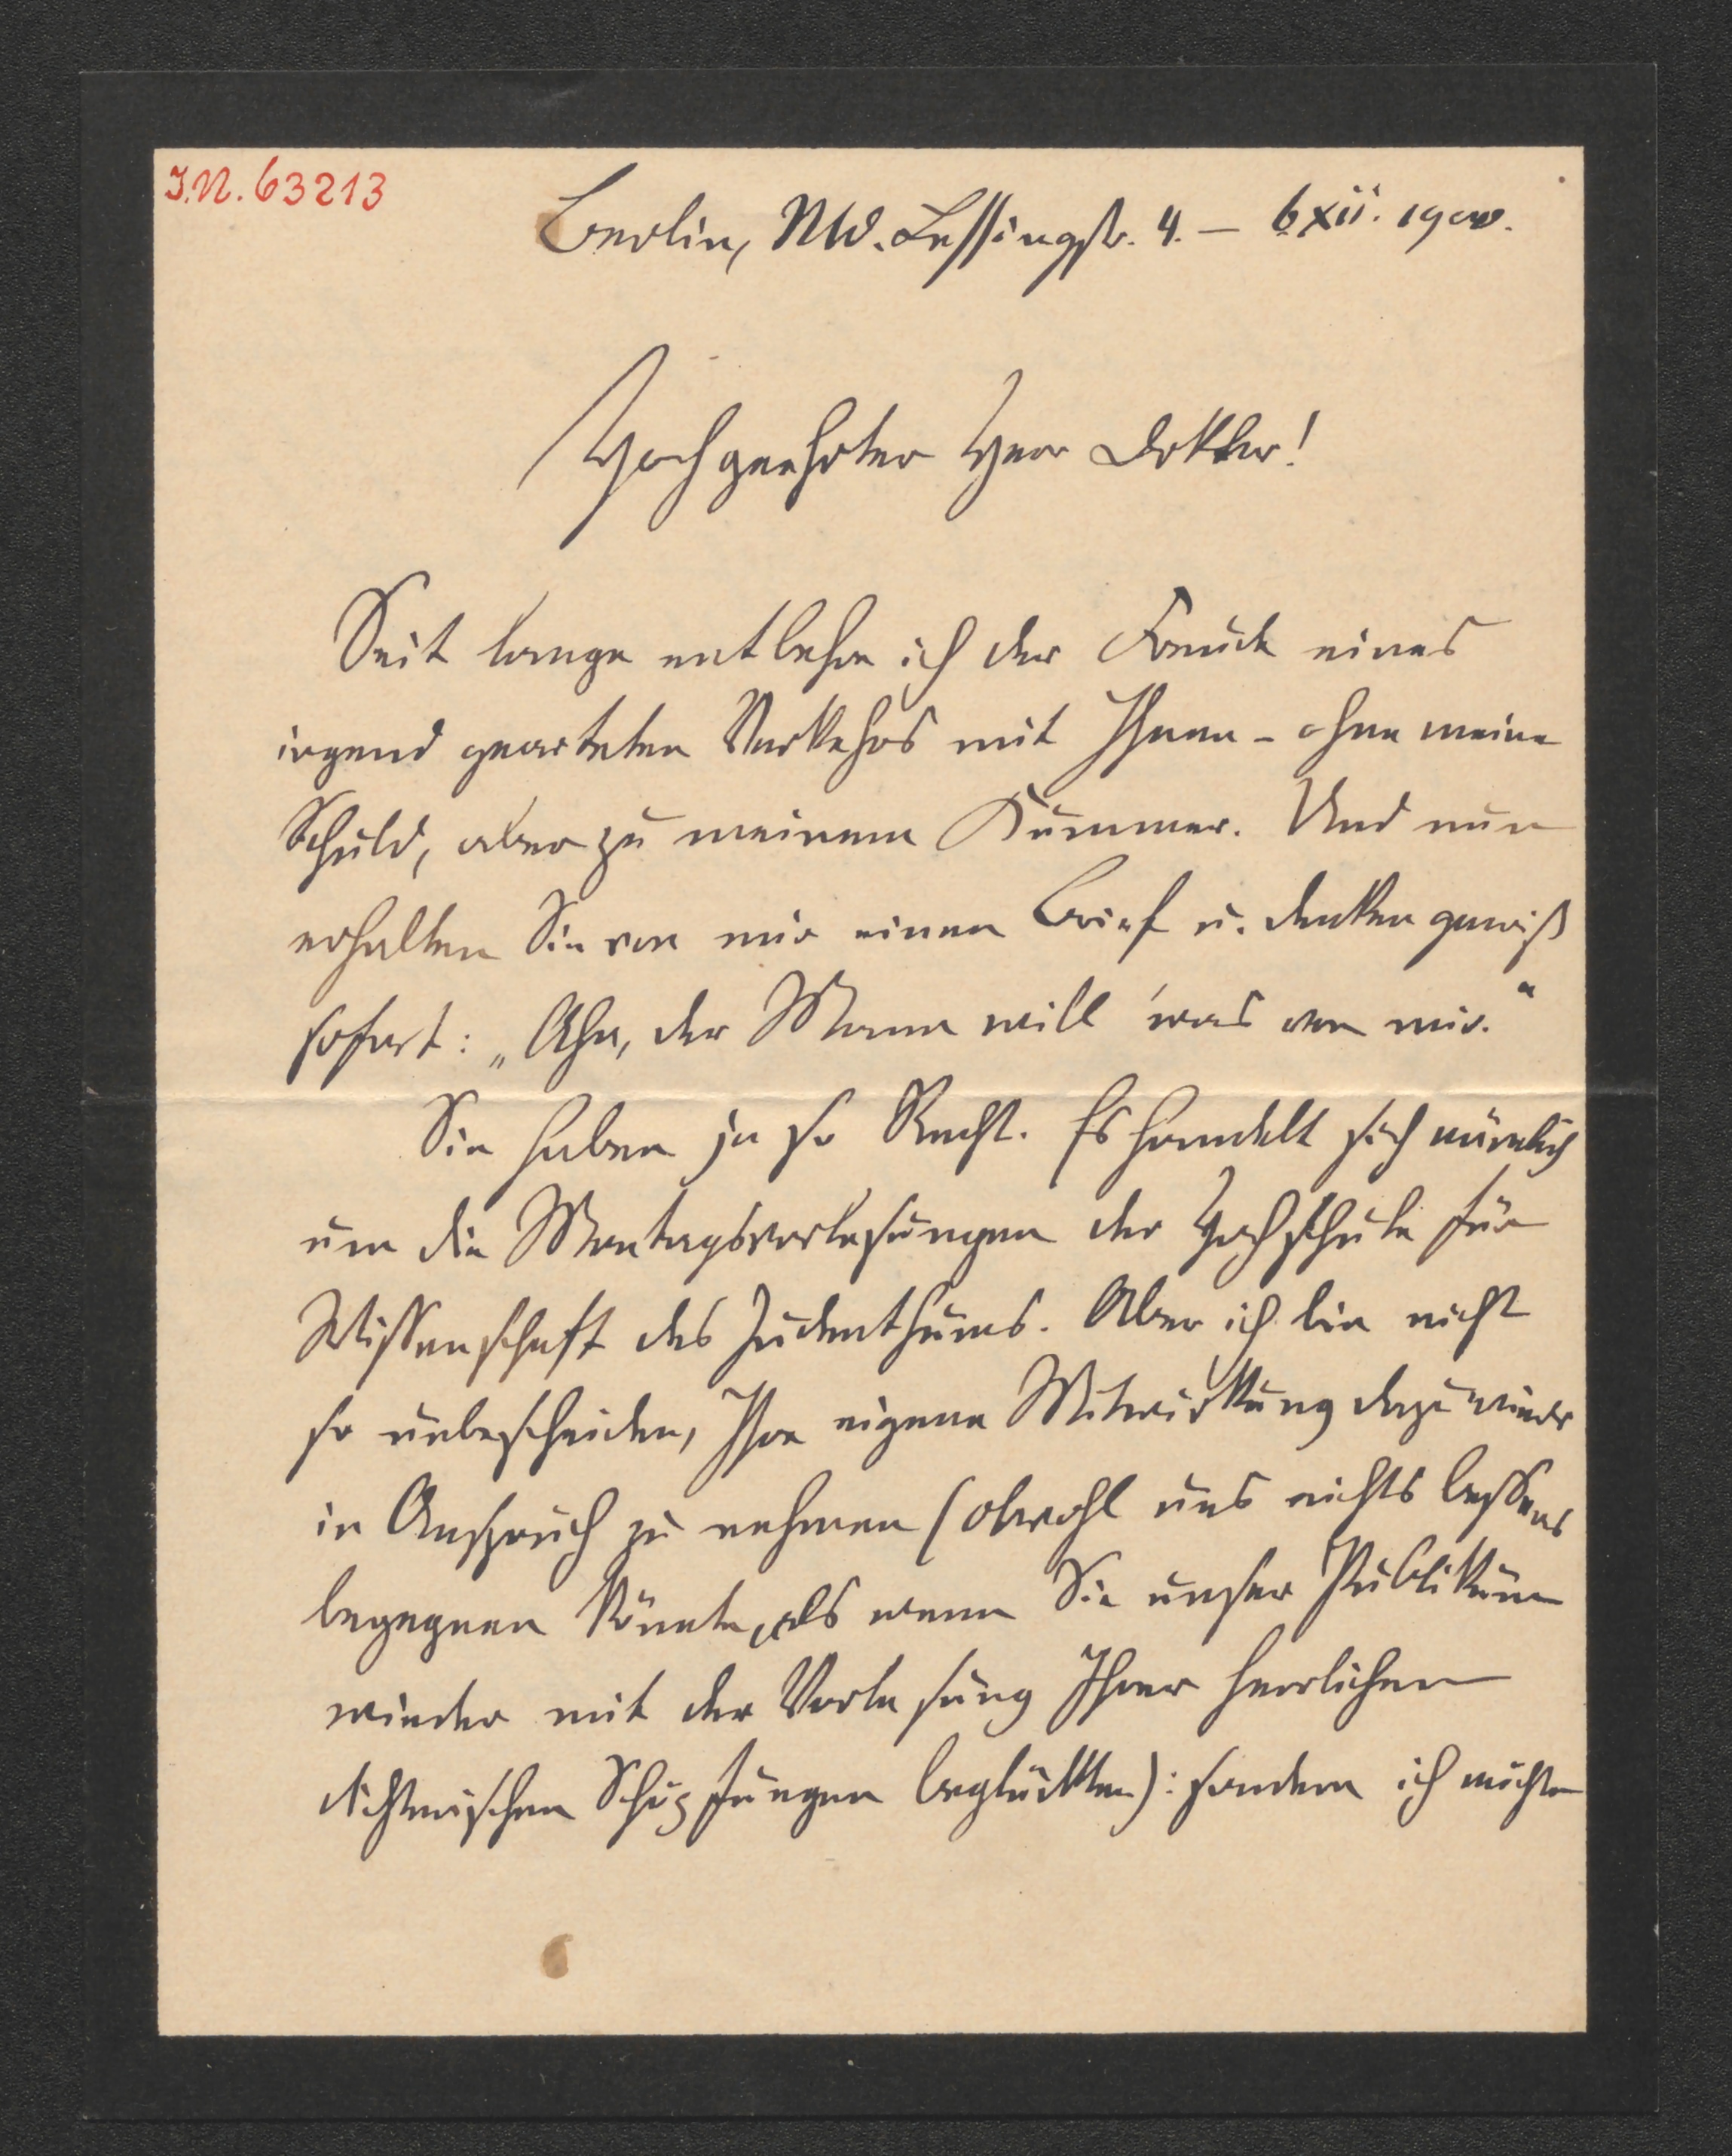 I.N. 63213
Berlin, NW. Lessingstr. 4. – 6 XII. 1900.
Hochgeehrter Herr Doktor!
Seit lange entbehre ich der Freude eines
irgend gearteten Verkehrs mit Ihnen – ohne meine
Schuld, aber zu meinem Kummer. Und nun
erhalten Sie von mir einen Brief u. denken gewiß
sofort: „Aha, der Mann will 'was von mir.“
Sie haben ja so Recht. Es handelt sich nämlich
um die Montagsvorlesungen der Hochschule für
Wissenschaft des Judenthums. Aber ich bin nicht
so unbescheiden, Ihre eigene Mitwirkung dazu wieder
in Anspruch zu nehmen (obwohl uns nichts besseres
begegnen könnte, als wenn Sie unser Publikum
wieder mit der Vorlesung Ihrer herrlichen
dichterischen Schöpfungen beglückten): sondern ich möchte